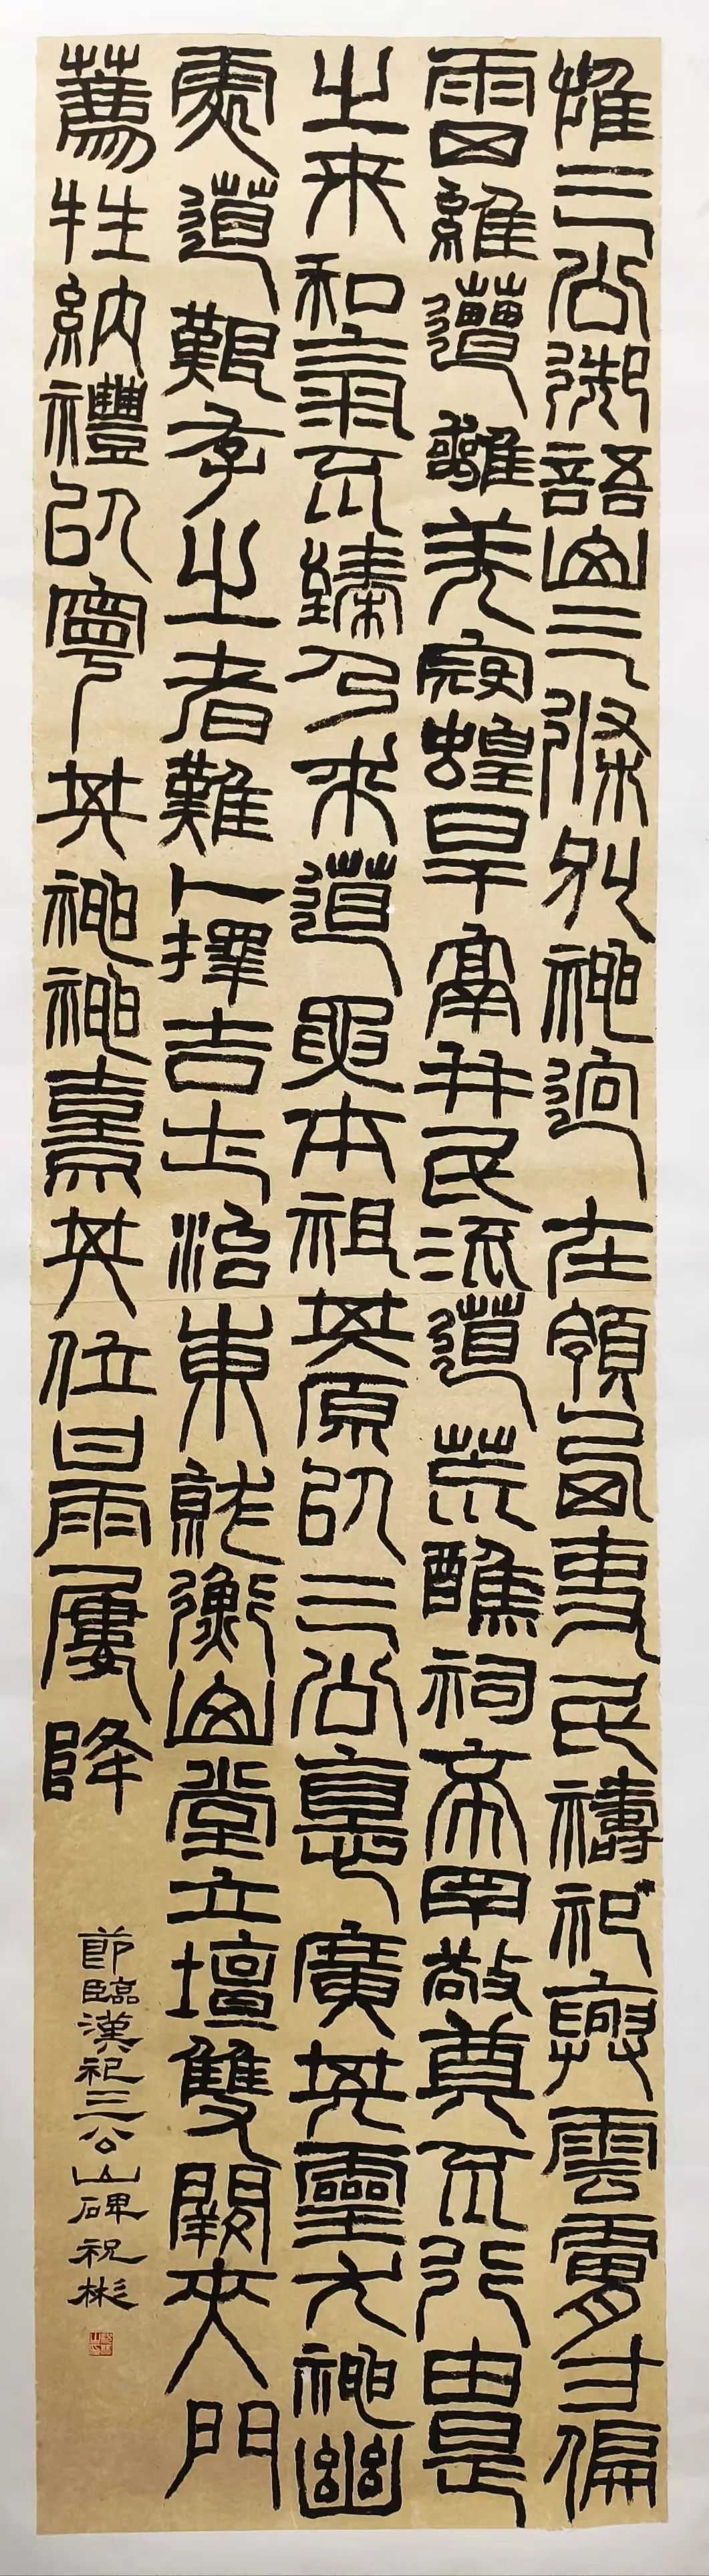 惟三公御語山三條別神迥在領西吏民禱祀興雲膚寸偏
雨四維遭離羌寇蝗旱鬲并民流道荒醮祠希罕敬奠不行由是
之來和氣不臻乃求道要本祖其原以三公悳廣其靈尤神幽
處道艱存之者難卜擇吉土治東就衡山堂立壇雙闕夾門
薦牲納禮以寧其神神熹其位甘雨屢降
節臨漢祀三公山碑祝彬